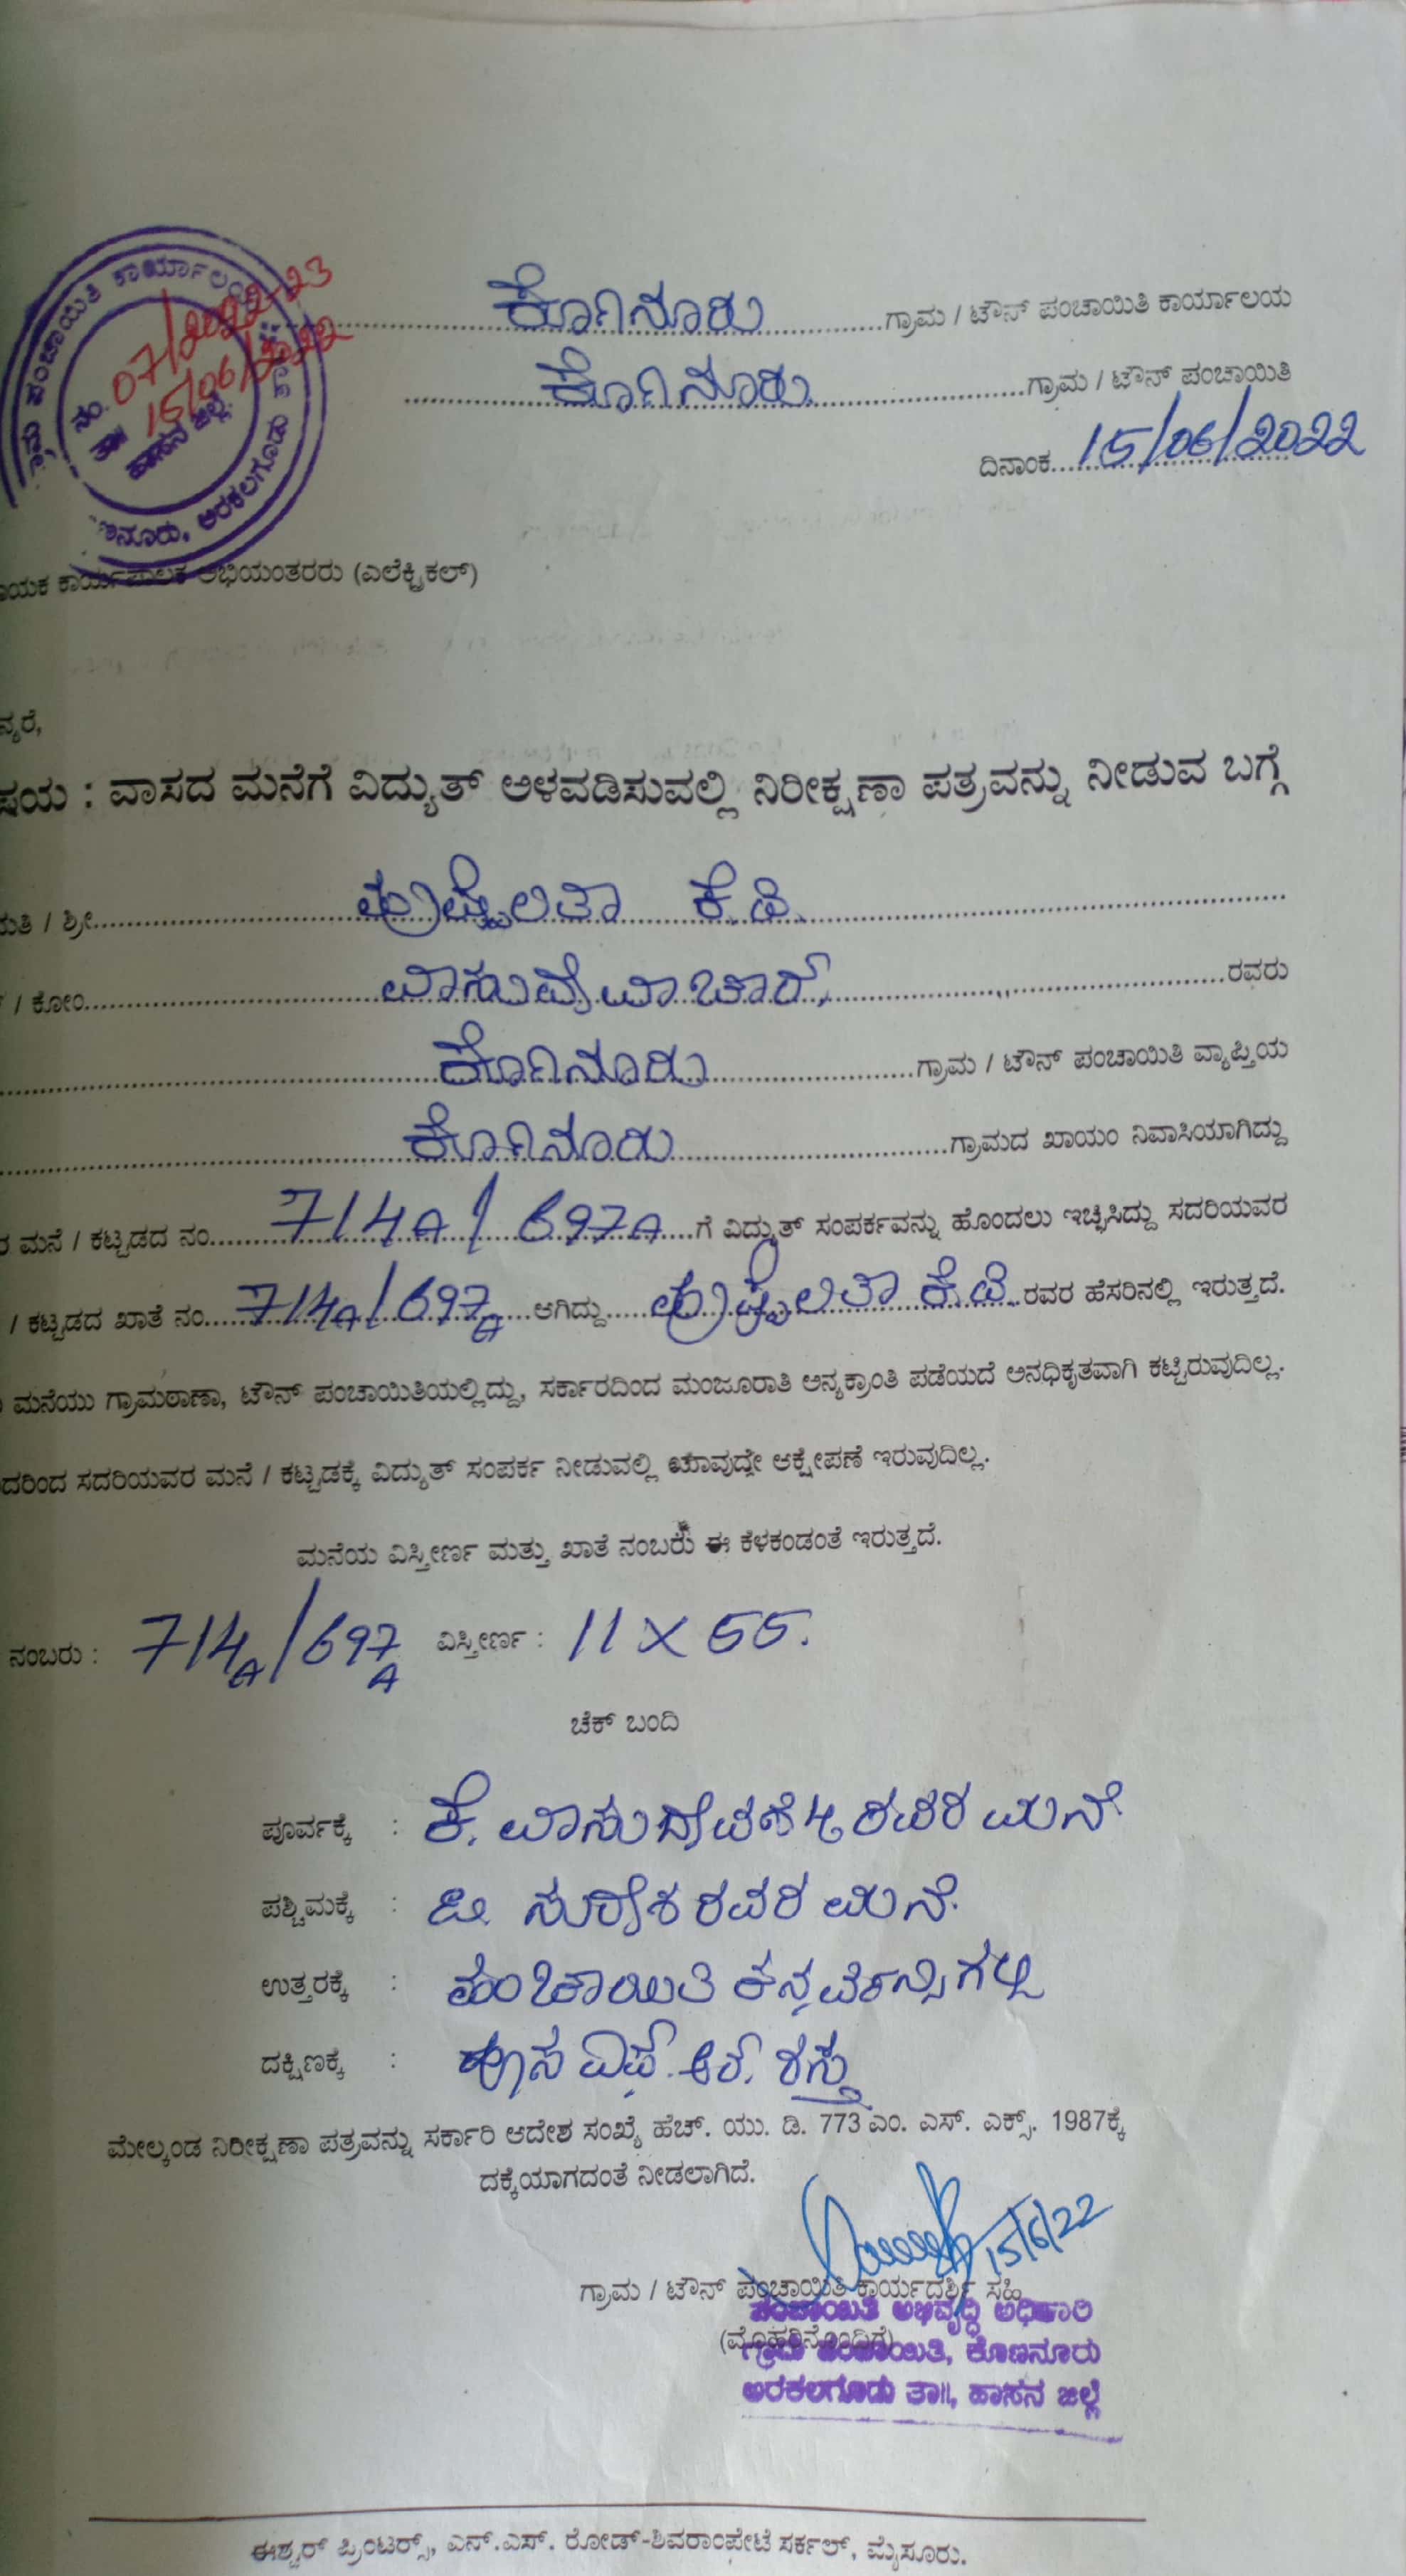 ಪಂಚಾಯಿತಿ ಕಾರ್ಯಾಲಯ
ನಂ. 07/2022-23
15/06/2022
ಹಾಸನ ಜಿಲ್ಲೆ
ಅರಕಲಗೂಡು
ಕೊಣನೂರು ಗ್ರಾಮ / ಟೌನ್ ಪಂಚಾಯಿತಿ ಕಾರ್ಯಾಲಯ
ಕೊಣನೂರು ಗ್ರಾಮ / ಟೌನ್ ಪಂಚಾಯಿತಿ
ದಿನಾಂಕ 15/06/2022
ಕಾರ್ಯಪಾಲಕ ಅಭಿಯಂತರರು (ಎಲೆಕ್ಟ್ರಿಕಲ್)
ನ್ಯರೆ,
ಷಯ : ವಾಸದ ಮನೆಗೆ ವಿದ್ಯುತ್ ಅಳವಡಿಸುವಲ್ಲಿ ನಿರೀಕ್ಷಣಾ ಪತ್ರವನ್ನು ನೀಡುವ ಬಗ್ಗೆ
ಮತಿ / ಶ್ರೀ ಪುಷ್ಪಲತಾ ಕೆ.ಪಿ.
/ ಕೋಂ ರವರು
ಕೊಣನೂರು ಗ್ರಾಮ / ಟೌನ್ ಪಂಚಾಯಿತಿ ವ್ಯಾಪ್ತಿಯ
ಕೊಣನೂರು ಗ್ರಾಮದ ಖಾಯಂ ನಿವಾಸಿಯಾಗಿದ್ದು
ರ ಮನೆ / ಕಟ್ಟಡದ ನಂ 714A/697A ಗೆ ವಿದ್ಯುತ್ ಸಂಪರ್ಕವನ್ನು ಹೊಂದಲು ಇಚ್ಛಿಸಿದ್ದು ಸದರಿಯವರ
/ ಕಟ್ಟಡದ ಖಾತೆ ನಂ 714A/697A ಆಗಿದ್ದು ಪುಷ್ಪಲತಾ ರವರ ಹೆಸರಿನಲ್ಲಿ ಇರುತ್ತದೆ.
ಮನೆಯು ಗ್ರಾಮಠಾಣಾ, ಟೌನ್ ಪಂಚಾಯಿತಿಯಲ್ಲಿದ್ದು, ಸರ್ಕಾರದಿಂದ ಮಂಜೂರಾತಿ ಅನ್ಯಕ್ರಾಂತಿ ಪಡೆಯದೆ ಅನಧಿಕೃತವಾಗಿ ಕಟ್ಟಿರುವುದಿಲ್ಲ.
ದರಿಂದ ಸದರಿಯವರ ಮನೆ / ಕಟ್ಟಡಕ್ಕೆ ವಿದ್ಯುತ್ ಸಂಪರ್ಕ ನೀಡುವಲ್ಲಿ ಯಾವುದೇ ಆಕ್ಷೇಪಣೆ ಇರುವುದಿಲ್ಲ.
ಮನೆಯ ವಿಸ್ತೀರ್ಣ ಮತ್ತು ಖಾತೆ ನಂಬರು ಈ ಕೆಳಕಂಡಂತೆ ಇರುತ್ತದೆ.
ನಂಬರು : 714A/697A ವಿಸ್ತೀರ್ಣ : 11 X 55.
ಚೆಕ್ ಬಂದಿ
ಪೂರ್ವಕ್ಕೆ : ಕೆ. ರವರ ಮನೆ
ಪಶ್ಚಿಮಕ್ಕೆ : ಸುರೇಶ ರವರ ಮನೆ.
ಉತ್ತರಕ್ಕೆ : ಪಂಚಾಯಿತಿ ಕನ್ಸರ್ವೆನ್ಸಿ ಗಲ್ಲಿ
ದಕ್ಷಿಣಕ್ಕೆ : ಹಾಸನ ರಸ್ತೆ
ಮೇಲ್ಕಂಡ ನಿರೀಕ್ಷಣಾ ಪತ್ರವನ್ನು ಸರ್ಕಾರಿ ಆದೇಶ ಸಂಖ್ಯೆ ಹೆಚ್. ಯು. ಡಿ. 773 ಎಂ. ಎಸ್. ಎಕ್ಸ್. 1987ಕ್ಕೆ
ದಕ್ಕೆಯಾಗದಂತೆ ನೀಡಲಾಗಿದೆ.
15/6/22
ಗ್ರಾಮ / ಟೌನ್ ಪಂಚಾಯಿತಿ ಕಾರ್ಯದರ್ಶಿ ಸಹಿ
ಪಂಚಾಯಿತಿ ಅಭಿವೃದ್ಧಿ ಅಧಿಕಾರಿ
(ಮೊಹರಿನೊಂದಿಗೆ)
ಗ್ರಾಮ ಪಂಚಾಯಿತಿ, ಕೊಣನೂರು
ಅರಕಲಗೂಡು ತಾ||, ಹಾಸನ ಜಿಲ್ಲೆ
ಈಶ್ವರ್ ಪ್ರಿಂಟರ್ಸ್, ಎನ್.ಎಸ್. ರೋಡ್-ಶಿವರಾಂಪೇಟೆ ಸರ್ಕಲ್, ಮೈಸೂರು.